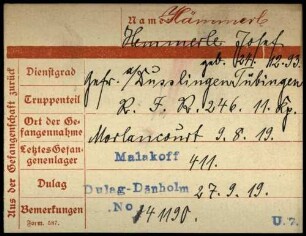 Name Hämmerle
Hemmerle Josef
geb. 24. 12. 93.
Dienstgrad Gefr. a/ Kusslingen Tübingen
Truppenteil R. I. R. 246. 11. Kp.
Ort der Gefangennahme Morlancourt 9. 8. 19.
Letztes Gefangenenlager Malakoff 411.
Dulag Dulag-Dänholm 27. 9. 19.
Bemerkungen No 141190.
Form. 587. U. 7.
Aus der Gefangenschaft zurück